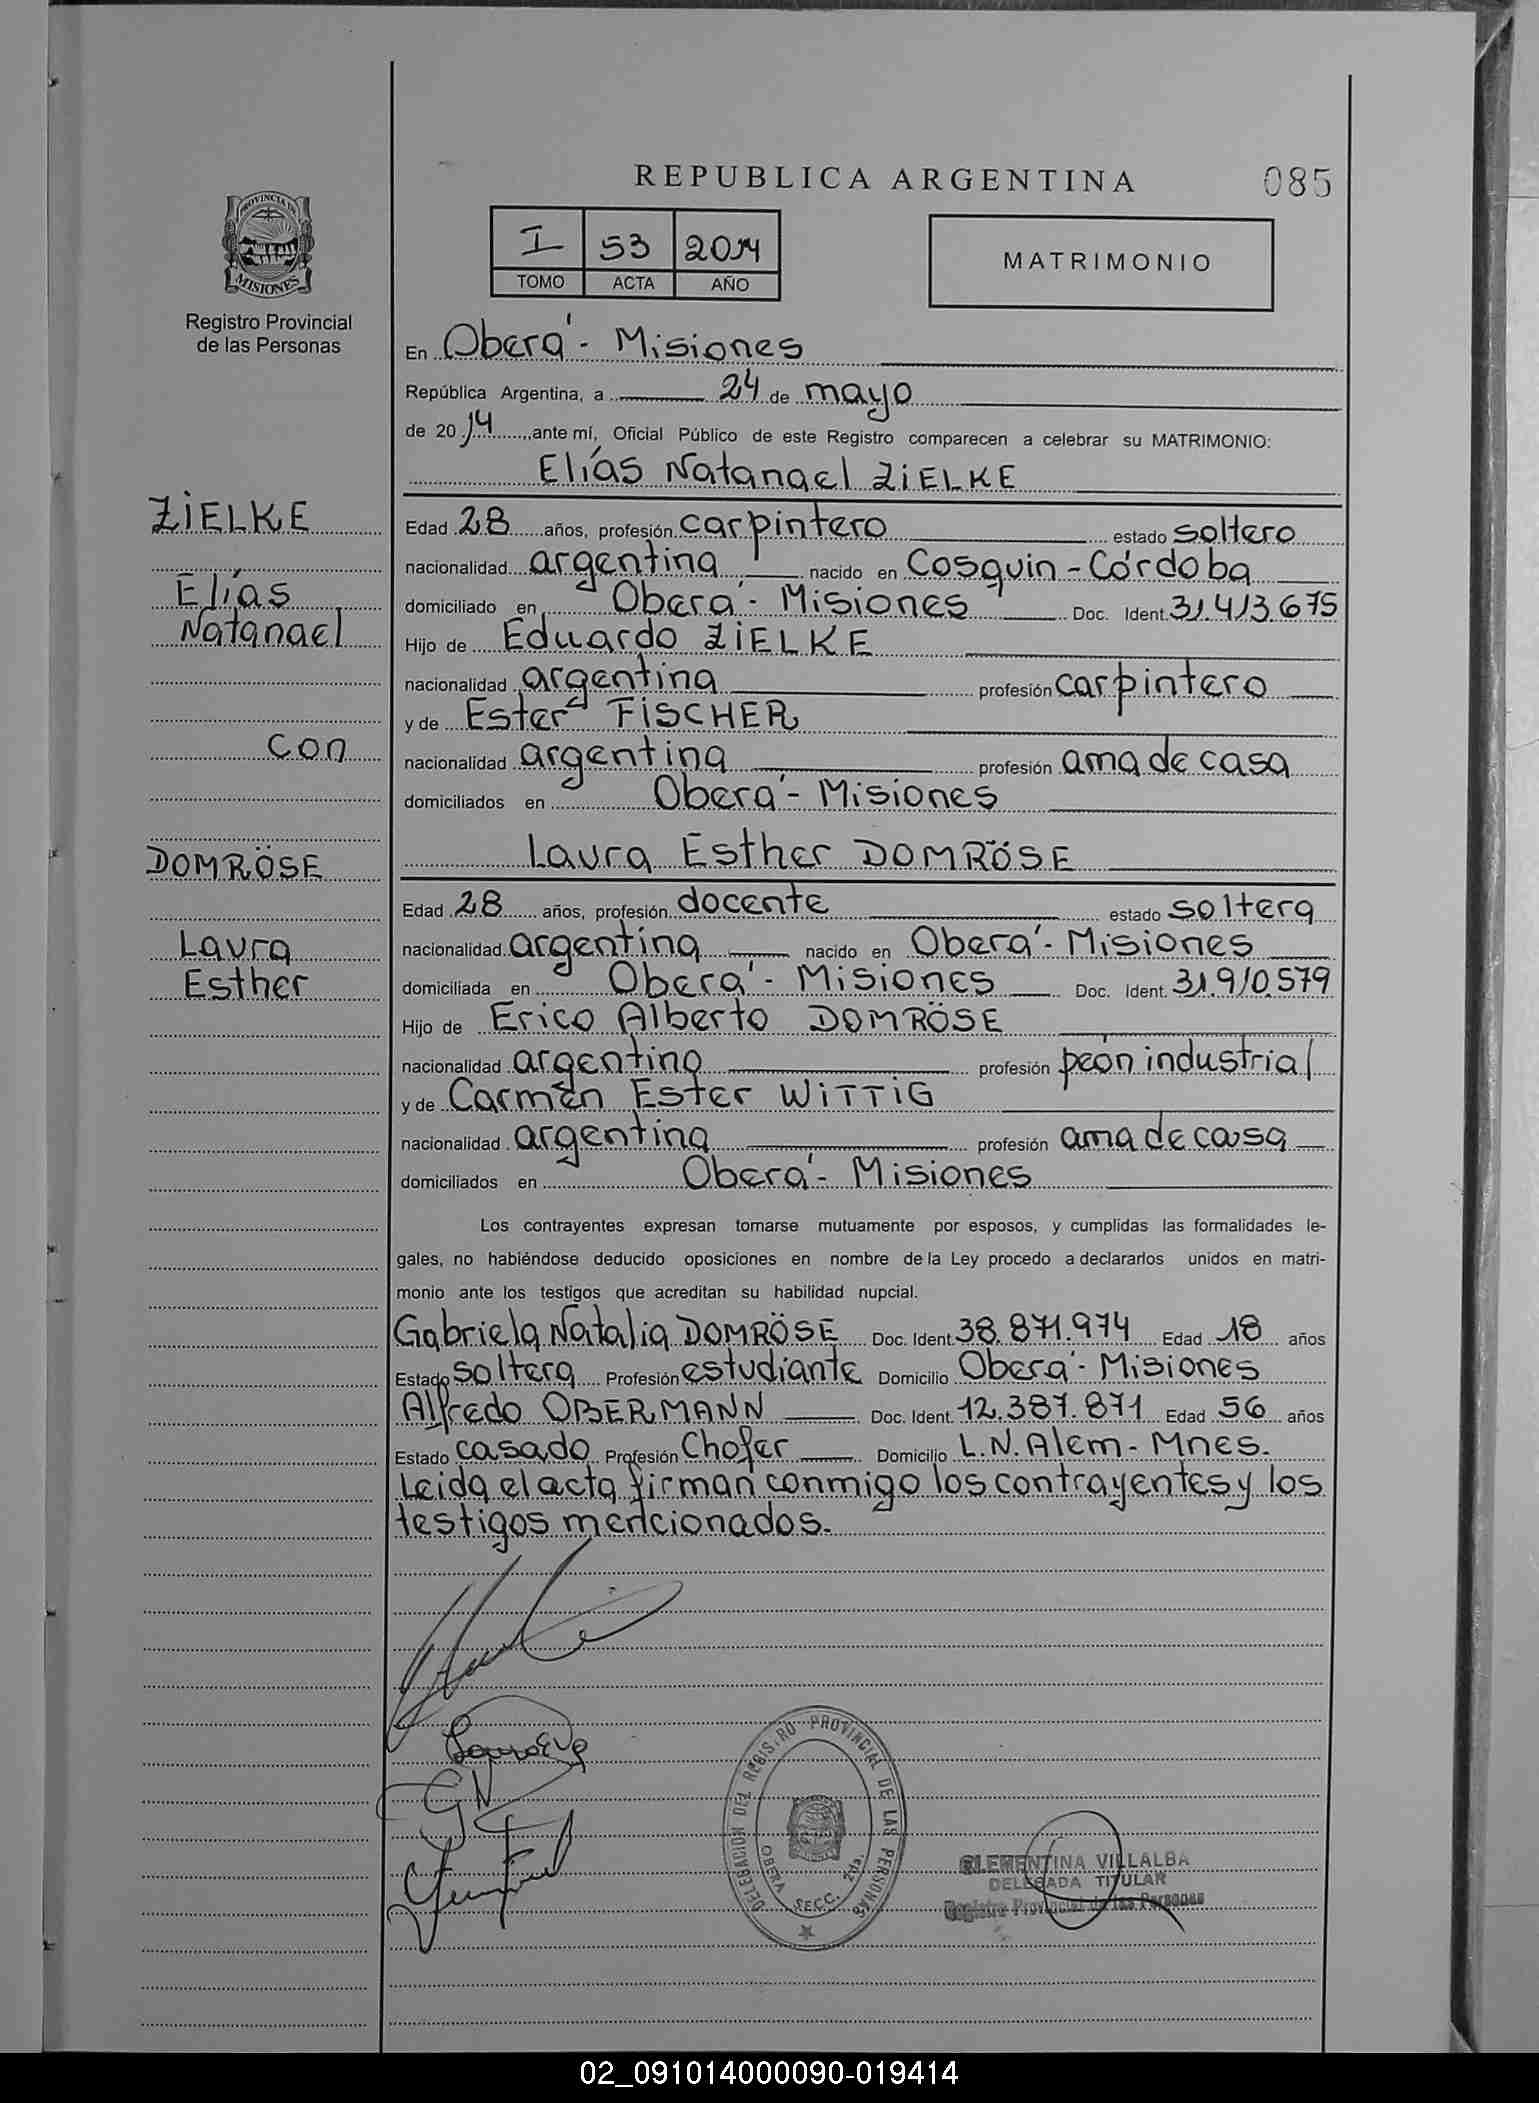 REPUBLICA ARGENTINA
085
PROVINCIA DE
MISIONES
Registro Provincial
de las Personas
I 53 2014
TOMO ACTA AÑO
MATRIMONIO
En Oberá - Misiones
República Argentina, a 24 de mayo
de 2014, ante mí, Oficial Público de este Registro comparecen a celebrar su MATRIMONIO:
Elías Natanael ZiELKE
ZiELKE
Elías
Natanael
con
DOMRÖSE
Laura
Esther
Edad 28 años, profesión carpintero estado soltero
nacionalidad argentina nacido en Cosquin - Córdoba
domiciliado en Oberá - Misiones Doc. Ident. 31.413.675
Hijo de Eduardo ZiELKE
nacionalidad argentina profesión carpintero
y de Ester FiSCHER
nacionalidad argentina profesión ama de casa
domiciliados en Oberá - Misiones
Laura Esther DOMRÖSE
Edad 28 años, profesión docente estado soltera
nacionalidad argentina nacido en Oberá - Misiones
domiciliada en Oberá - Misiones Doc. Ident. 31.910.579
Hijo de Erico Alberto DOMRÖSE
nacionalidad argentino profesión peón industrial
y de Carmen Ester WiTTiG
nacionalidad argentina profesión ama de casa
domiciliados en Oberá - Misiones
Los contrayentes expresan tomarse mutuamente por esposos, y cumplidas las formalidades le-
gales, no habiéndose deducido oposiciones en nombre de la Ley procedo a declararlos unidos en matri-
monio ante los testigos que acreditan su habilidad nupcial.
Gabriela Natalia DOMRÖSE Doc. Ident. 38.871.974 Edad 18 años
Estado soltera Profesión estudiante Domicilio Oberá - Misiones
Alfredo OBERMANN Doc. Ident. 12.387.871 Edad 56 años
Estado casado Profesión Chofer Domicilio L.N.Alem - Mnes.
Leida el acta firman conmigo los contrayentes y los
testigos mencionados.
DELEGACION DEL REGISTRO PROVINCIAL DE LAS PERSONAS
OBERA SECC. 2da.
CLEMENTINA VILLALBA
DELEGADA TITULAR
Registro Provincial de las Personas
02_091014000090-019414